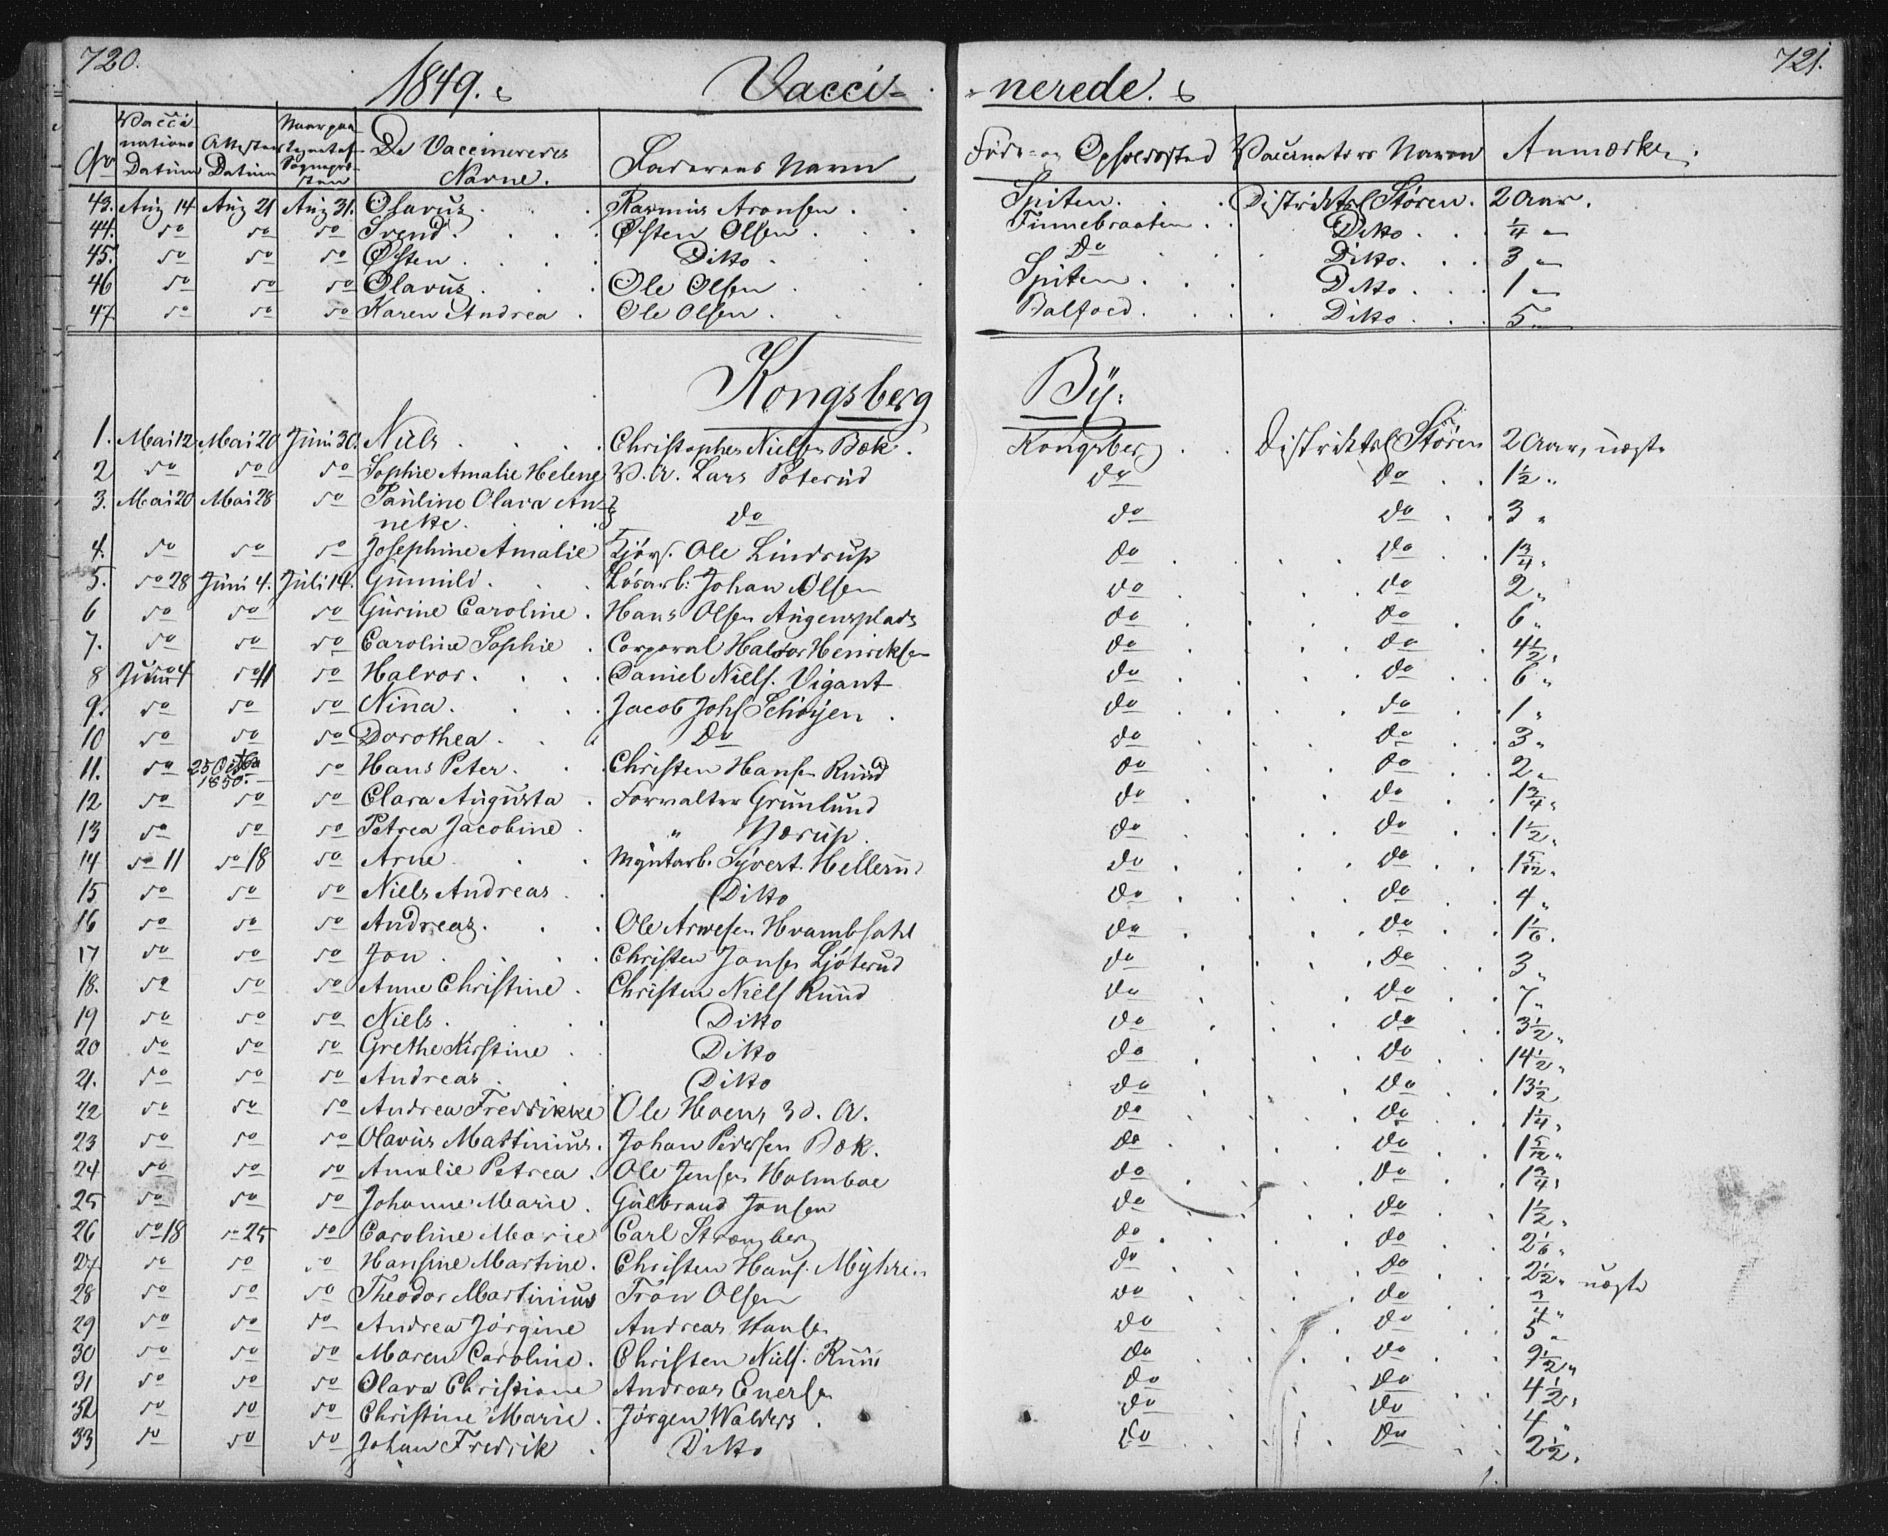 720. 1849. Vacci- -nerede. 721.
No Vacci-nations Datum Attestens Datum De Vaccineredes Navne. Faderens Navn Føde- og Opholdssted Vaccinateurs Navn Anmærkn.
43. Aug 14 Aug 21 Aug 31. Olavus Rasmus Aronsen Spiten Distriktsl Støren. 2 Aar.
44. do do do Trend. Østen Olsen Finnebraaten Ditto ¼ "
45. do do do Østen Ditto Do Ditto. 3 "
46 do do do Olavus Ole Olsen Spiten Ditto 1 "
47 do do do Karen Andrea Ole Olsen Ditto 5 "
Kongsberg By:
1. Mai 12 Mai 20 Juni 30. Niels Christopher Nielsen Bæk. Kongsberg Distriktsl Støren 2 Aar, uægte
2 do do do Sophie Amalie Helene V. A. Lars Poterud do do 1½ "
3. Mai 20 Mai 28 do Pauline Olava An-
nette. do do do 3 "
4. do do do Josephine Amalie Kjørs. Ole Lindrup do do 1¾ "
5. do 28 Juni 4. Juli 14. Gunnild. Løsarb: Johan Olsen do do 2 "
6 do do do Gurine Caroline Hans Olsen Augensplads do do 6 "
7. do do do Caroline Sophie Corporal Halvor Henriksen do do 4½ "
8 Juni 4 do 11 do Halvor. Daniel Niels. Vigant do do 6 "
9. do do do Nina. Jacob Johs Schøyen do do 1 "
10 do do do Dorothea. Do do do 3 "
11. do 25 Octbr 1850. do Hans Peter. Christen Hansen Ruud do do 2 "
12 do do do Clara Augusta Forvalter Grunlund do do 1¾ "
13 do do do Petrea Jacobine " Nørup. do do 1½ "
14 do 11 do 18 do Arne Myntarb. Syvert. Hellerud do do 1 5/12 "
15 do do do Niels Andreas Ditto do do 4 "
16 do do do Andreas. Ole Arnesen Hvambsahl do do 1 1/6.
17 do do do Jon Christen Jonsen Ljøterud do do 3 "
18. do do do Anne Christine Christen Niels Ruud do do 7 "
19 do do do Niels Ditto do do 3½ "
20 do do do Grethe Kirstine Ditto do do 14½ "
21. do do do Andreas Ditto do do 13½
22 do do do Andrea Fredrikke Ole Hoens 3d. A. do do 1¼ "
23 do do do Olavus Mattinius. Johan Pedersen Bæk. do do 1 5/12 "
24 do do do Amalie Petrea Ole Jensen Holmboe do do 1¾ "
25 do do do Johanne Marie. Gulbrand Jonsen do do 1½ "
26 do 18 do 25 do Caroline Marie Carl Strømberg do do 2 1/6 "
27 do do do Hansine Martine. Christen Hans. Myhren do do 2½ " uægte
28 do do do Theodor Martinius Tron Olsen do do ¾ "
29 do do do Andrea Jørgine Andreas Hansen do do 5 "
30 do do do Maren Caroline. Christen Niels. Ruud do do 9½ "
31 do do do Olava Christiane Andreas Enersen do do 4½ "
32 do do do Christine Marie. Jørgen Walders do do 4 "
33 do do do Johan Fredrik Ditto do do 2½ "